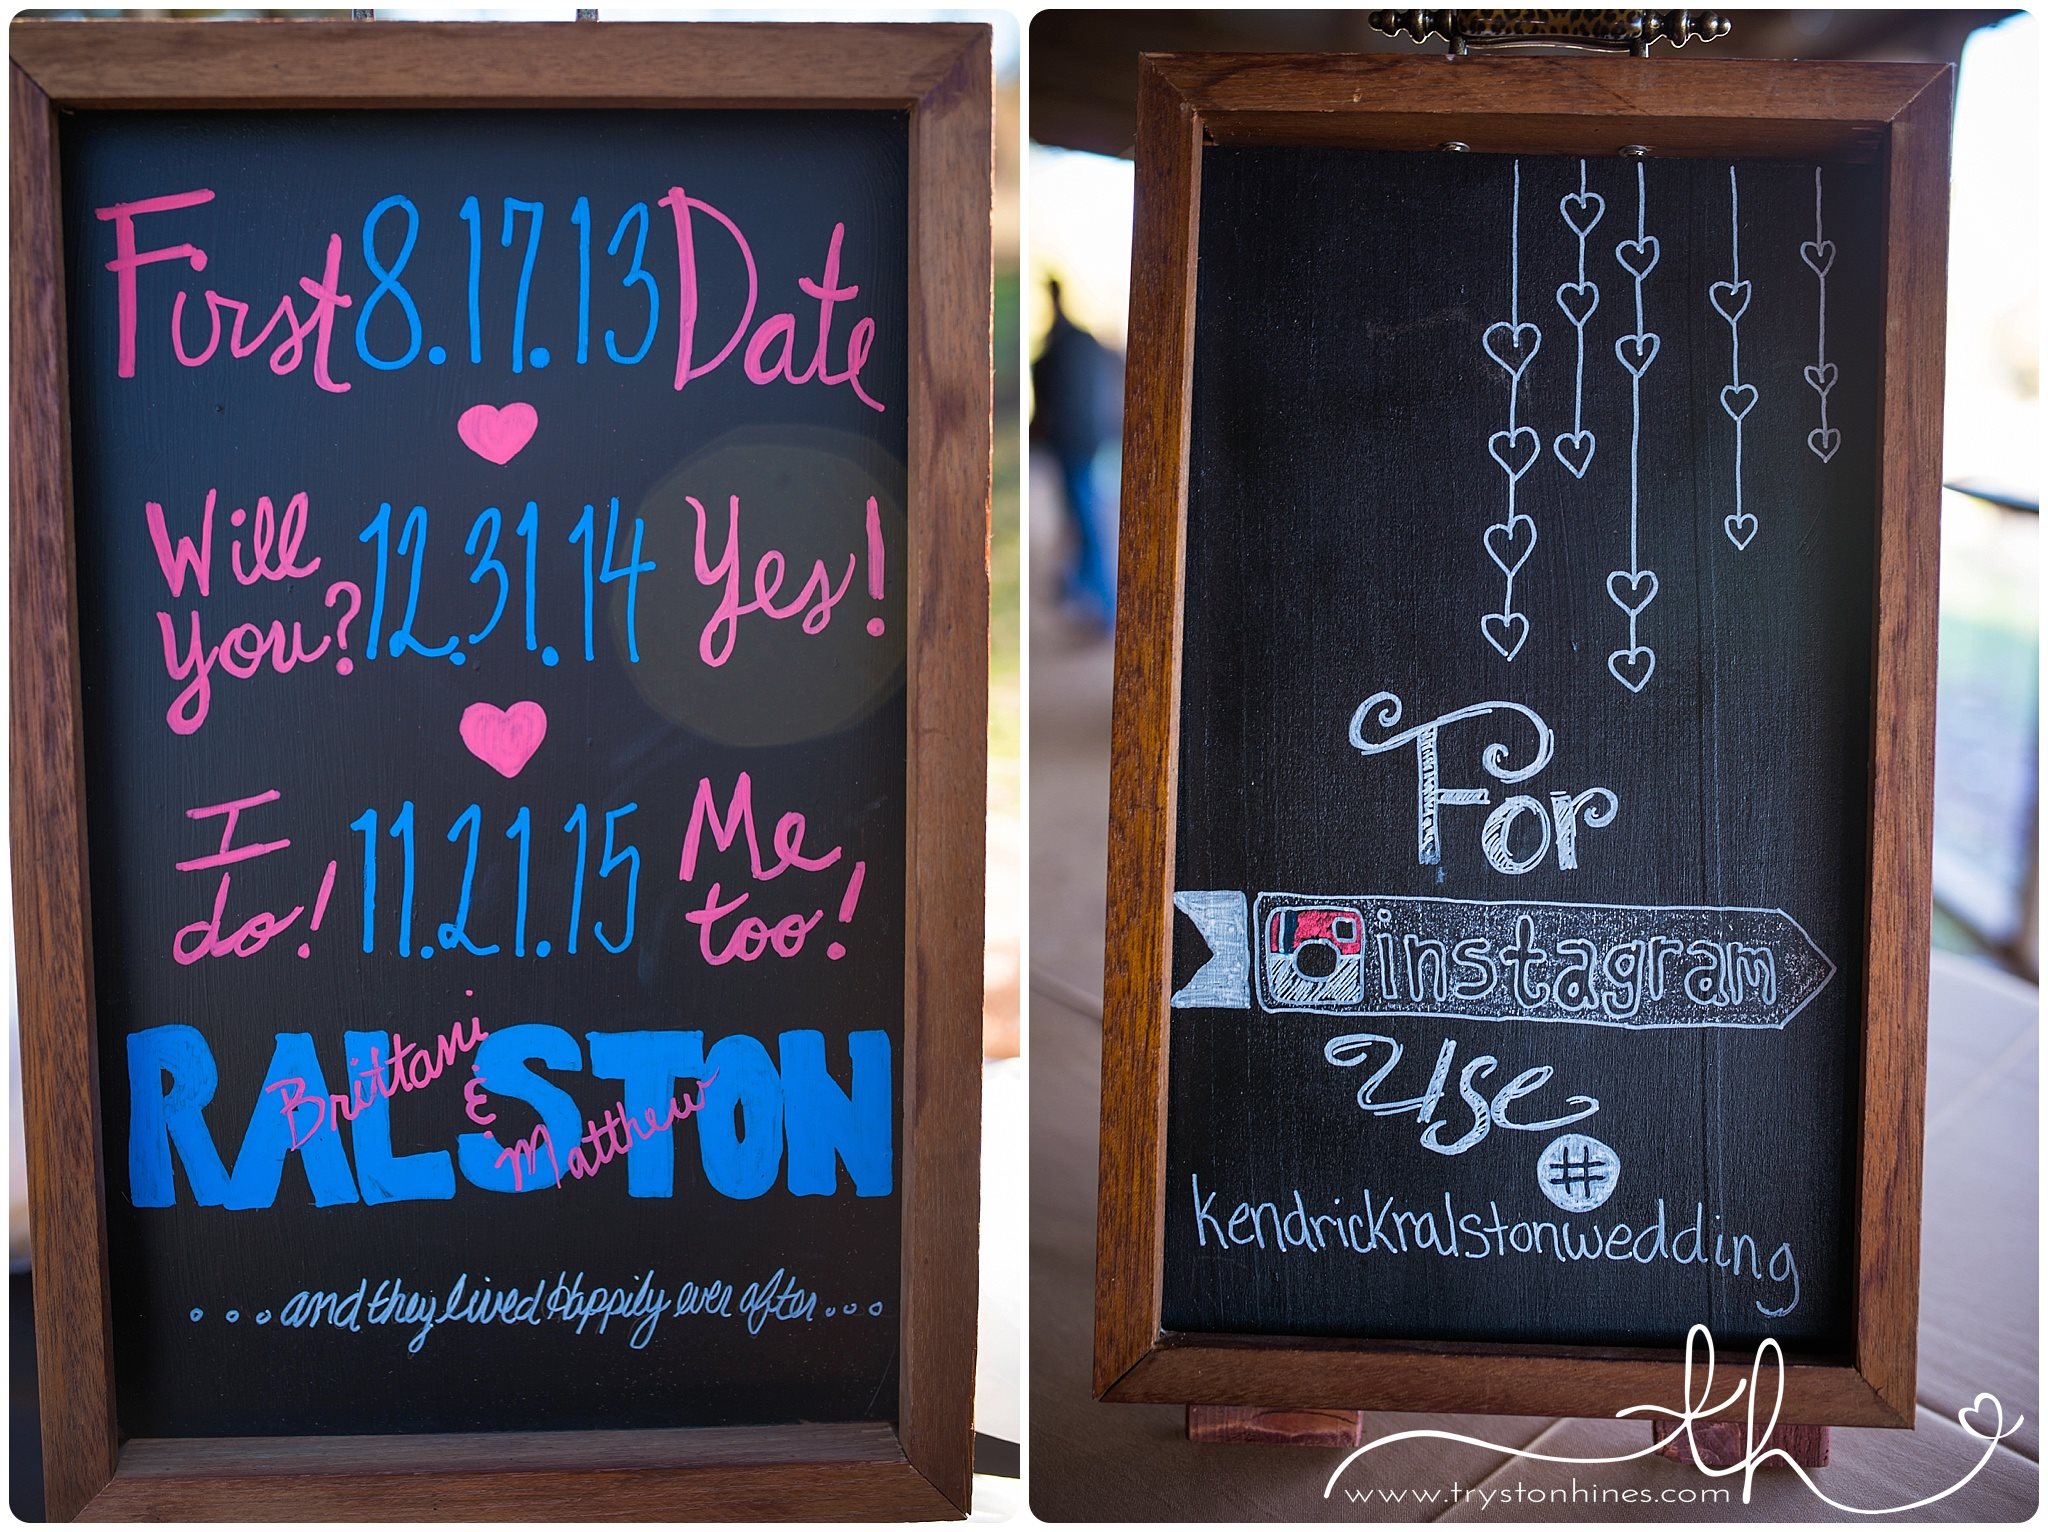 First 8.17.13 Date
Will you? 12.31.14 Yes!
I do! 11.21.15 Me too!
RALSTON
Brittani
&
Matthew
...and they lived Happily ever after...
For
instagram
Use
#
kendrickralstonwedding
th
www.trystonhines.com